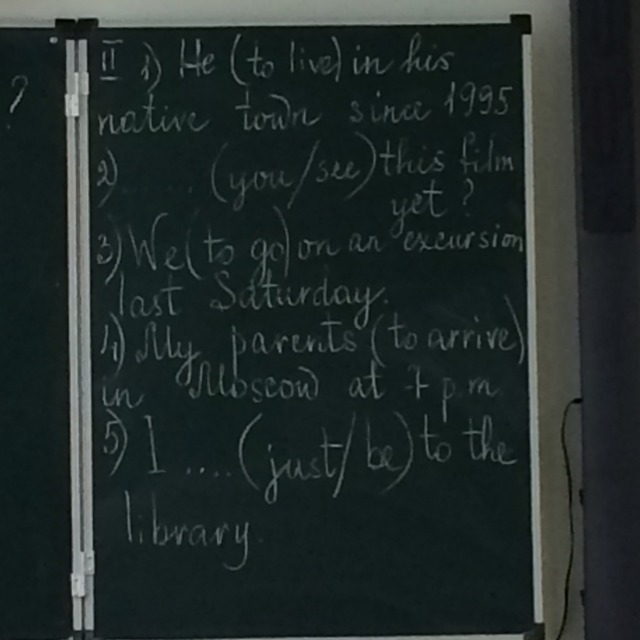 ?
II 1) He (to live) in his
native town since 1995
2) ...... (you/see) this film
yet?
3) We (to go) on an excursion
last Saturday.
4) My parents (to arrive)
in Moscow at 7 p.m
5) I .... (just/be) to the
library.